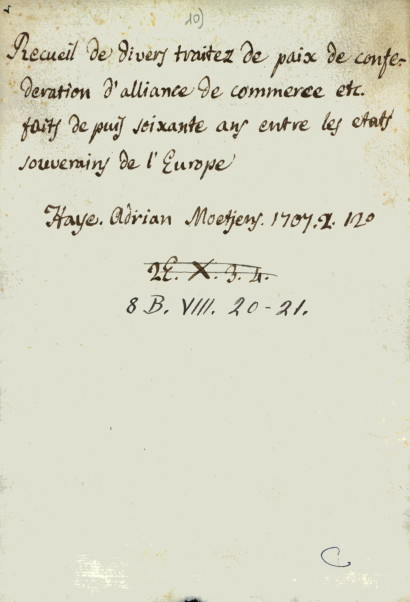 10)
Recueil de divers traitez de paix de confe-
deration d'alliance de commerce etc.
faits de puis soixante ans entre les etats
souverains de l'Europe
Haye. Adrian Moetjens. 1707. 2. 12o
2E. X. 3. 4.
8 B. VIII. 20-21.
C